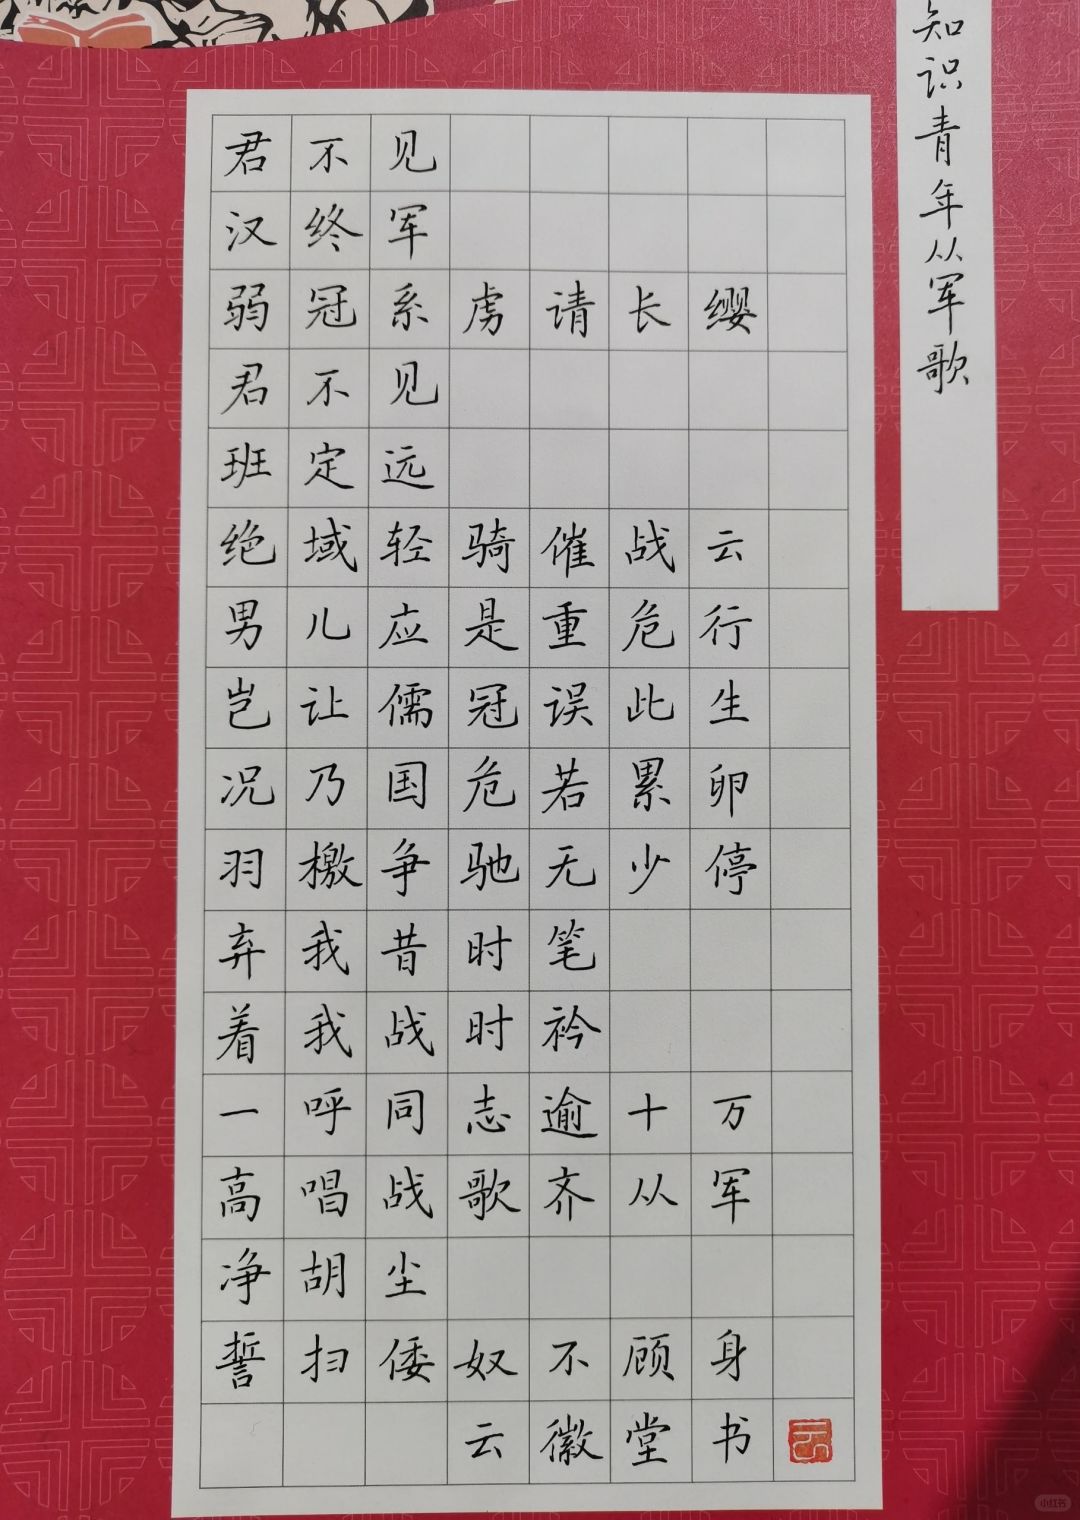 知识青年从军歌
君不见
汉终军
弱冠系虏请长缨
君不见
班定远
绝域轻骑催战云
男儿应是重危行
岂让儒冠误此生
况乃国危若累卵
羽檄争驰无少停
弃我昔时笔
着我战时衿
一呼同志逾十万
高唱战歌齐从军
净胡尘
誓扫倭奴不顾身
云徽堂书
小红书